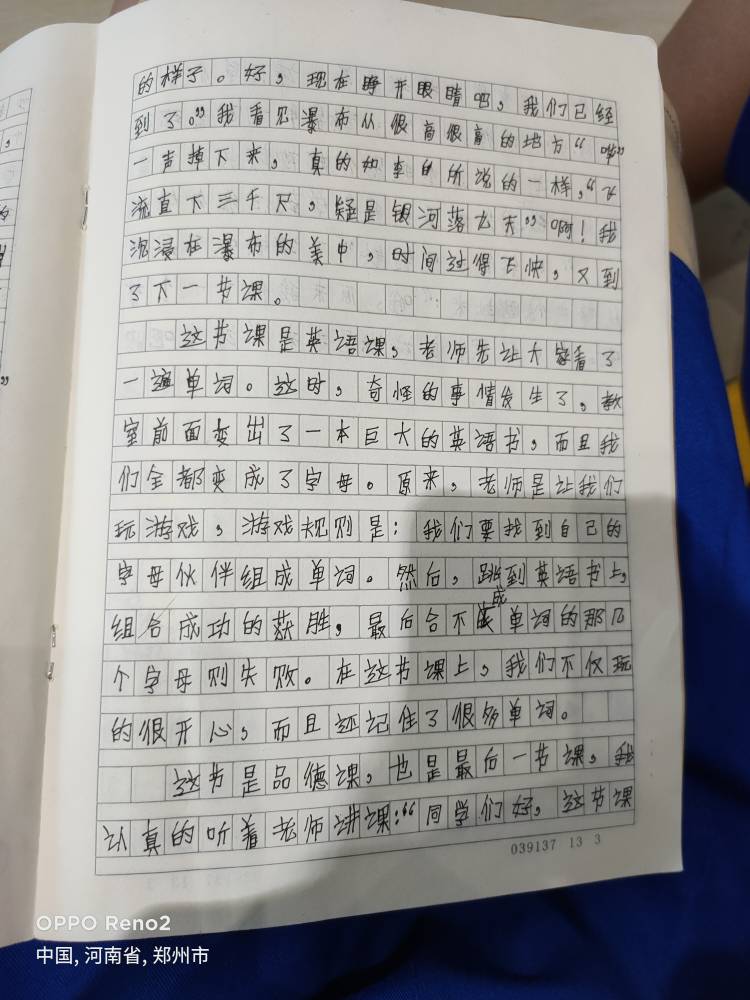 的样子。好，现在睁开眼睛吧，我们已经
到了。”我看见瀑布从很高很高的地方“哗”
一声掉下来，真的如李白所说的一样，“飞
流直下三千尺，疑是银河落九天”啊！我
沉浸在瀑布的美中，时间过得飞快，又到
了下一节课。
这节课是英语课，老师先让大家看了
一遍单词。这时，奇怪的事情发生了，教
室前面变出了一本巨大的英语书，而且我
们全都变成了字母。原来，老师是让我们
玩游戏，游戏规则是：我们要找到自己的
字母伙伴组成单词。然后，跳到英语书上，
组合成功的获胜，最后合不成单词的那几
个字母则失败。在这节课上，我们不仅玩
的很开心，而且还记住了很多单词。
这节是品德课，也是最后一节课，我
认真的听着老师讲课：“同学们好，这节课
039137 13 3
OPPO Reno2
中国, 河南省, 郑州市